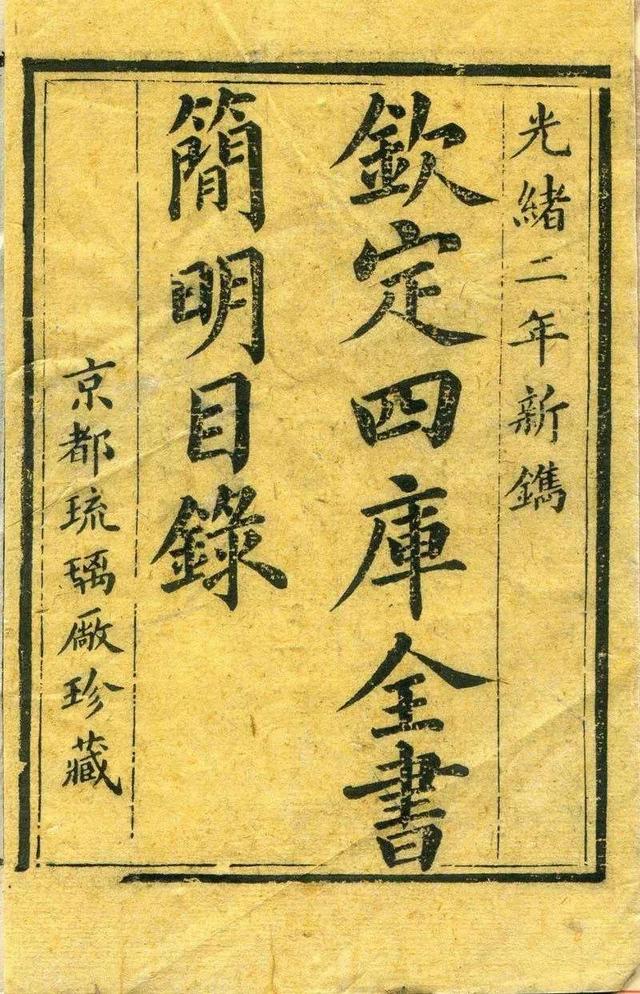 光緒二年新鐫
欽定四庫全書
簡明目錄
京都琉璃廠珍藏